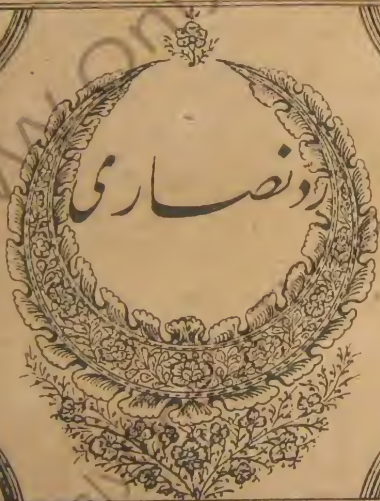 ردنصاری